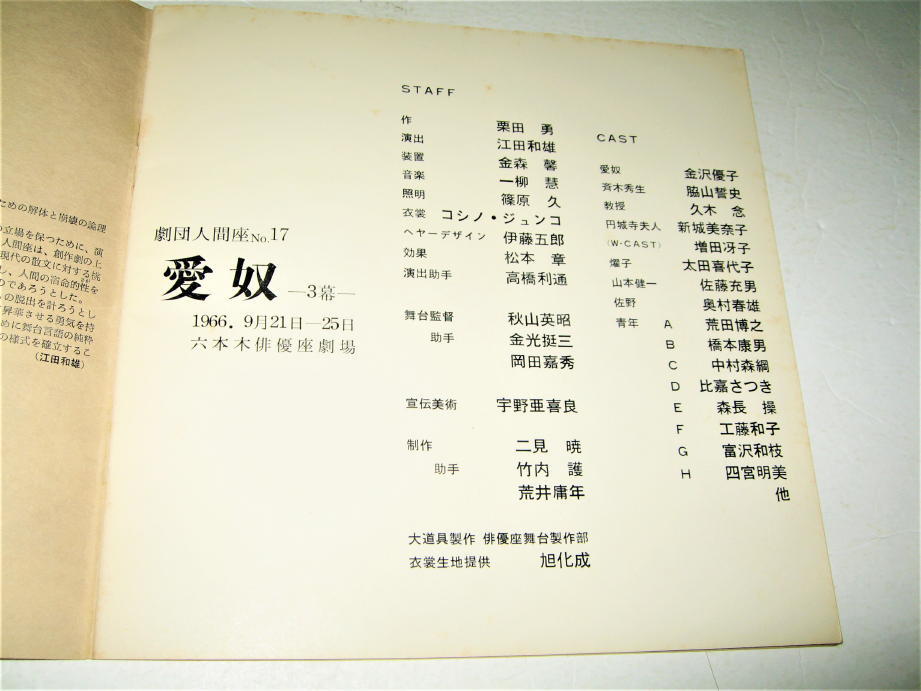 ための解体と崩壊の論理
の立場を保つために、演
人間座は、創作劇の上
現代の散文に対する挑
し、人間の宿命的性を
のであろうとした。
らの脱出を計ろうとし
昇華させる勇気を持
めに舞台言語の純粋
の様式を確立するこ
(江田和雄)
劇団人間座No.17
愛奴 —3幕—
1966. 9月21日—25日
六本木俳優座劇場
STAFF
作 栗田 勇
演出 江田和雄
装置 金森 馨
音楽 一柳 慧
照明 篠原 久
衣裳 コシノ・ジュンコ
ヘヤーデザイン 伊藤五郎
効果 松本 章
演出助手 高橋利通
舞台監督 秋山英昭
助手 金光挺三
岡田嘉秀
宣伝美術 宇野亜喜良
制作 二見 暁
助手 竹内 護
荒井庸年
大道具製作 俳優座舞台製作部
衣裳生地提供 旭化成
CAST
愛奴 金沢優子
斉木秀生 脇山誓史
教授 久木 念
円城寺夫人 新城美奈子
(W-CAST) 増田冴子
燿子 太田喜代子
山本健一 佐藤充男
佐野 奥村春雄
青年 A 荒田博之
B 橋本康男
C 中村森綱
D 比嘉さつき
E 森長 操
F 工藤和子
G 富沢和枝
H 四宮明美
他